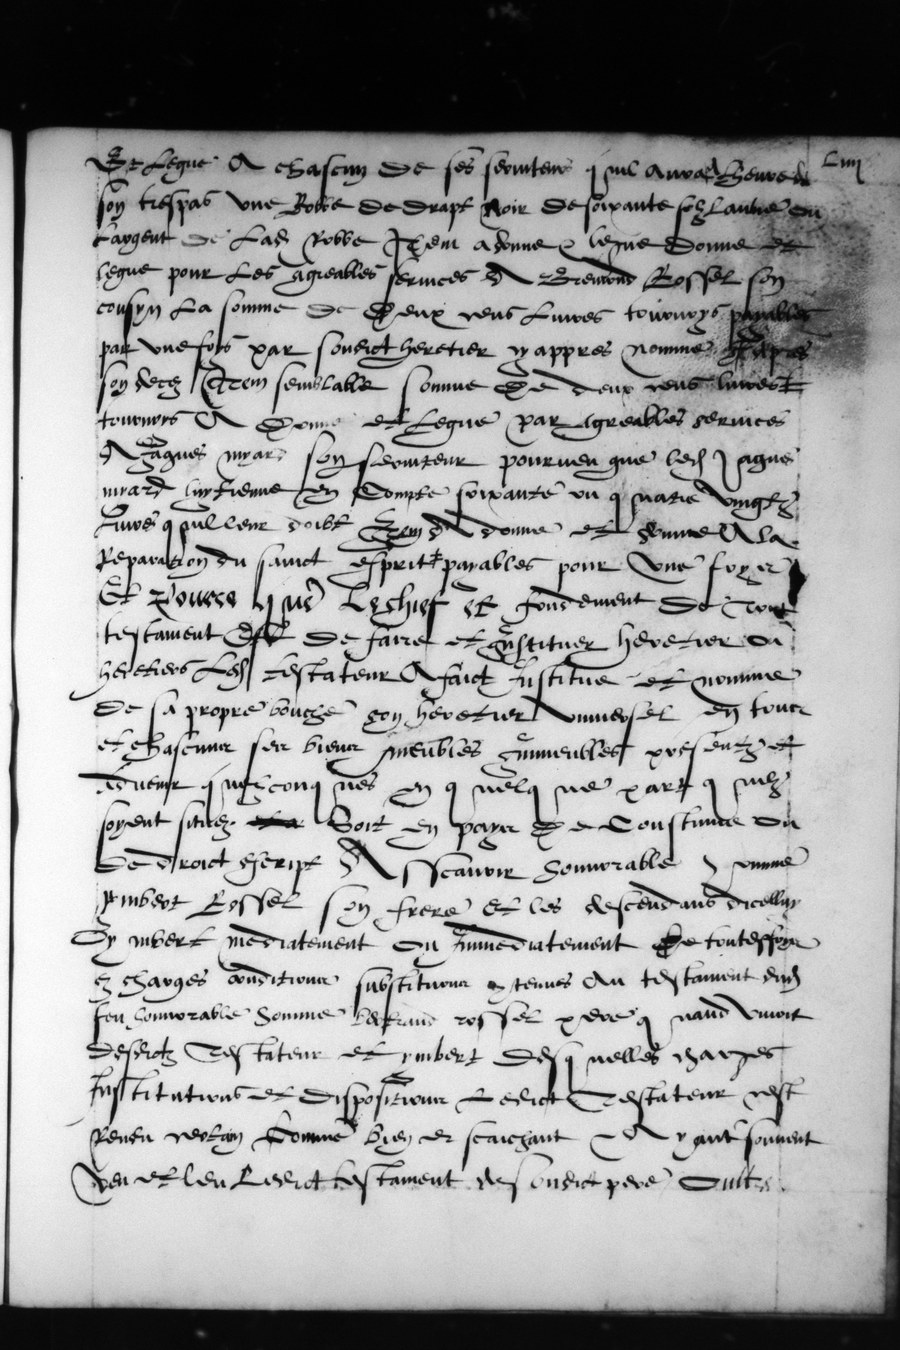 Et legue A chascun de ses serviteurs quil aura lheure de Liiii
son trespas une Robbe de drapt Noir de soixante solz laulne ou
Largent de lad Robbe Item a donne et legue donne et
legue pour les agreables services A Bremond Rossel son
cousyn La somme de Deux cens Livres tournoys payables
par une foys par sondict heretier cy appres nomme Et apres
son decez Item semblable somme De deux cens livres
tournoys A Donne et Legue par agreables services
A Jaques myard son serviteur pourveu que led Jaques
myard luy tienne en Compte soixante ou quatre vingtz
livres quil leur doibt Item A donne et donne A la
Reparation du sainct esprit payables pour une foys
Et Pource que Le chief et fondement de Tout
testament Est de faire et Instituer heretier ou
heretiers Led testateur A faict Institue et nomme
de sa propre bouche son heretier universel en tous
et chascuns ses biens meubles Immeubles presentz et
advenir quelzconques En quelque part quilz
soyent situez Soit en pays De Coustume ou
de droict escript Assavoir honnorable homme
Ymbert Rossel son frere Et les descendans dicelluy
Ymbert mediatement ou Immediatement De touteffoys
ez charges conditions substitutions contenues Au testament dud
feu honnorable homme Bertrand rossel pere quand vivoit
desdictz Testateur et ymbert desquelles charges
Institutions et dispositions Ledict Testateur cest
Rendu certain Comme bien et scaichant Et Ayant souvent
veu et leu Ledict testament de sondict pere Oultre